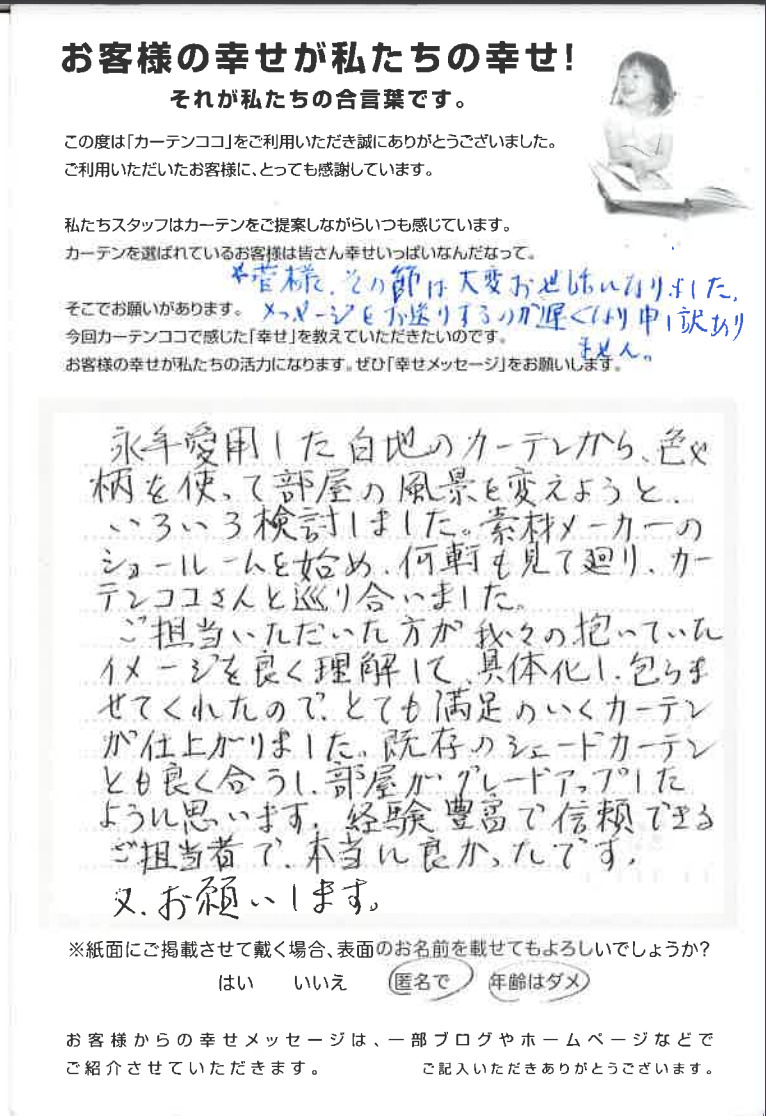 お客様の幸せが私たちの幸せ!
それが私たちの合言葉です。
この度は「カーテンココ」をご利用いただき誠にありがとうございました。
ご利用いただいたお客様に、とっても感謝しています。
私たちスタッフはカーテンをご提案しながらいつも感じています。
カーテンを選ばれているお客様は皆さん幸せいっぱいなんだなって。
*菅様、その節は大変お世話になりました。
メッセージをお送りするのが遅くなり申し訳あり
ません。
そこでお願いがあります。
今回カーテンココで感じた「幸せ」を教えていただきたいのです。
お客様の幸せが私たちの活力になります。ぜひ「幸せメッセージ」をお願いします。
永年愛用した白地のカーテンから、色や
柄を使って部屋の風景を変えようと、
いろいろ検討しました。素材メーカーの
ショールームを始め、何軒も見て廻り、カー
テンココさんと巡り合いました。
ご担当いただいた方が我々の抱いていた
イメージを良く理解して、具体化し、包らま
せてくれたので、とても満足のいくカーテン
が仕上がりました。既存のシェードカーテン
とも良く合うし、部屋がグレードアップした
ように思います。経験豊富で信頼できる
ご担当者で、本当に良かったです。
又、お願いします。
※紙面にご掲載させて戴く場合、表面のお名前を載せてもよろしいでしょうか?
はい いいえ 匿名で 年齢はダメ
お客様からの幸せメッセージは、一部ブログやホームページなどで
ご紹介させていただきます。 ご記入いただきありがとうございます。